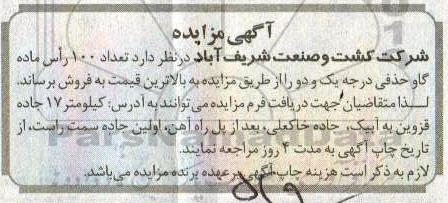 آگهی مزایده
شرکت کشت و صنعت شریف آباد درنظر دارد تعداد ۱۰۰ رأس ماده
گاو حذفی درجه یک و دو را از طریق مزایده به بالاترین قیمت به فروش برساند.
لـذا متقاضیان جهت دریافت فرم مزایده می‌توانند به آدرس: کیلومتر ۱۷ جاده
قزوین به آبیک، جاده خاکعلی، بعد از پل راه آهن، اولین جاده سمت راست، از
تاریخ چاپ آگهی به مدت ۴ روز مراجعه نمایند.
لازم به ذکر است هزینه چاپ آگهی برعهده برنده مزایده می‌باشد.